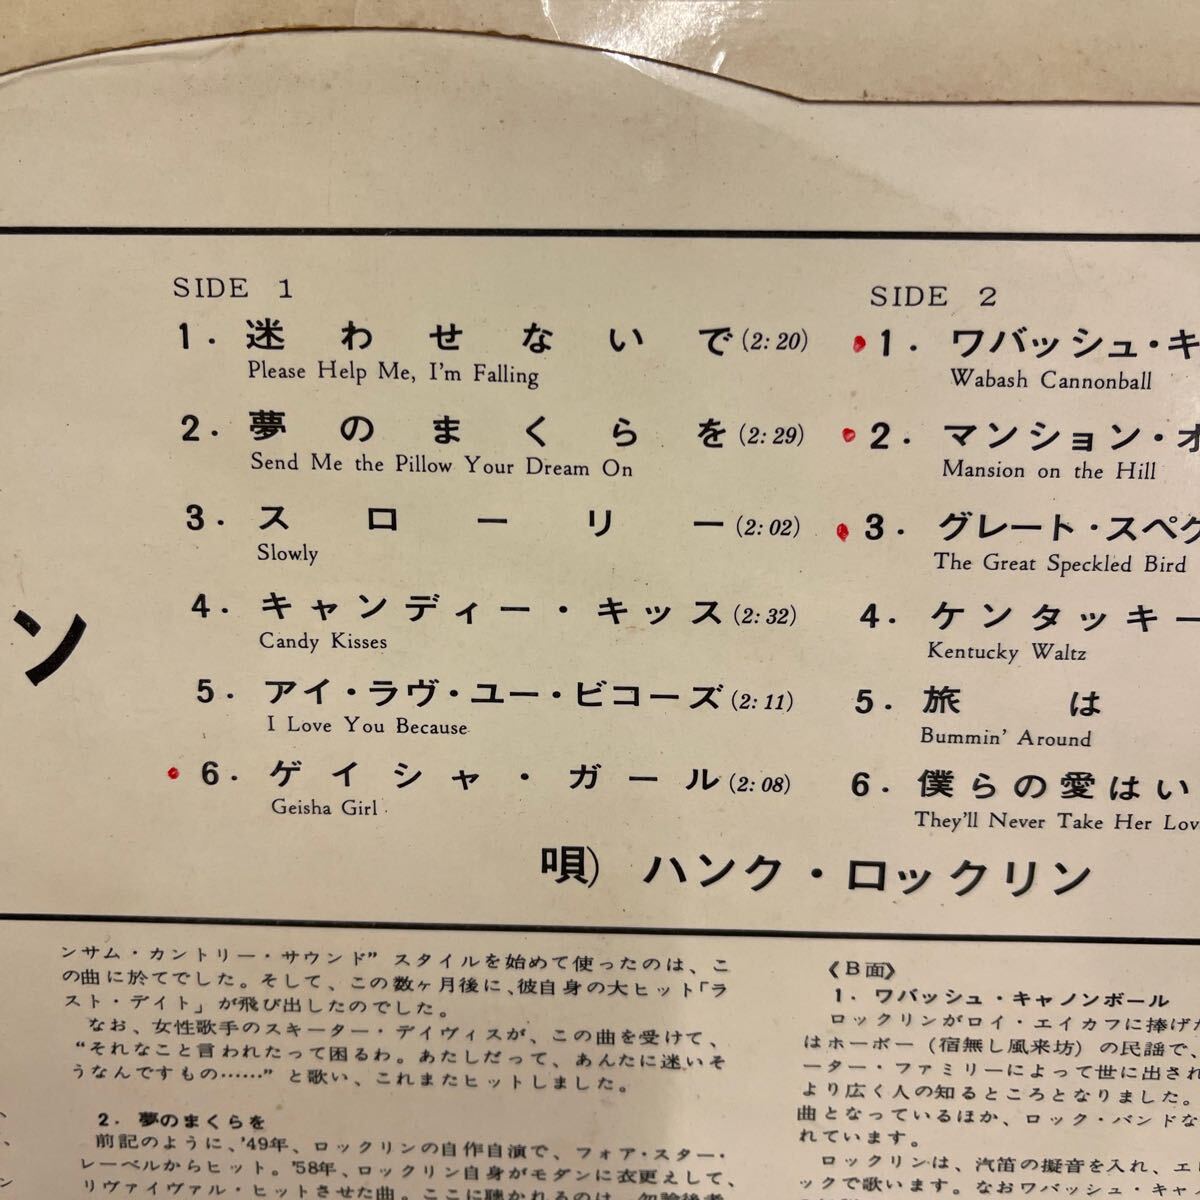 SIDE 1
1. 迷わせないで (2:20)
Please Help Me, I'm Falling
2. 夢のまくらを (2:29)
Send Me the Pillow Your Dream On
3. スローリー (2:02)
Slowly
4. キャンディー・キッス (2:32)
Candy Kisses
5. アイ・ラヴ・ユー・ビコーズ (2:11)
I Love You Because
6. ゲイシャ・ガール (2:08)
Geisha Girl
SIDE 2
1. ワバッシュ・キ
Wabash Cannonball
2. マンション・オ
Mansion on the Hill
3. グレート・スペク
The Great Speckled Bird
4. ケンタッキー
Kentucky Waltz
5. 旅は
Bummin' Around
6. 僕らの愛はい
They'll Never Take Her Lov
ン
唄) ハンク・ロックリン
ンサム・カントリー・サウンド” スタイルを始めて使ったのは、こ
の曲に於てでした。そして、この数ヶ月後に、彼自身の大ヒット「ラ
スト・デイト」が飛び出したのでした。
なお、女性歌手のスキーター・デイヴィスが、この曲を受けて、
“それなこと言われたって困るわ。あたしだって、あんたに迷いそ
うなんですもの……” と歌い、これまたヒットしました。
2. 夢のまくらを
前記のように、'49年、ロックリンの自作自演で、フォア・スター・
レーベルからヒット。'58年、ロックリン自身がモダンに衣更えして、
リヴァイヴァル・ヒットさせた曲。ここに聴かれるのは、勿論後者
《B面》
1. ワバッシュ・キャノンボール
ロックリンがロイ・エイカフに捧げた
はホーボー (宿無し風来坊) の民謡で、
ーター・ファミリーによって世に出され
より広く人の知るところとなりました。
曲となっているほか、ロック・バンドな
れています。
ロックリンは、汽笛の擬音を入れ、エレ
ックで歌います。なおワバッシュ・キャ